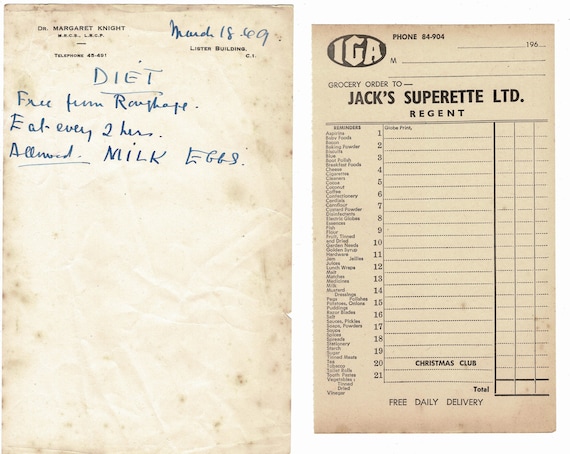 DR. MARGARET KNIGHT
M.R.C.S., L.R.C.P.
TELEPHONE 45-451
March 18 69.
LISTER BUILDING,
C.1.
DIET
Free from Roughage.
Eat every 2 hrs.
Allowed. MILK EGGS.
IGA
PHONE 84-904
196
M
GROCERY ORDER TO —
JACK'S SUPERETTE LTD.
REGENT
REMINDERS
Globe Print,
Aspirins
Baby Foods
Bacon
Baking Powder
Biscuits
Blue
Boot Polish
Breakfast Foods
Cheese
Cigarettes
Cleaners
Cocoa
Coconut
Coffee
Confectionery
Cordials
Cornflour
Custard Powder
Disinfectants
Electric Globes
Essences
Fish
Flour
Fruit, Tinned
and Dried
Garden Needs
Golden Syrup
Hardware
Jam Jellies
Juices
Lunch Wraps
Malt
Matches
Medicines
Milk
Mustard
Dressings
Pegs Polishes
Potatoes, Onions
Puddings
Razor Blades
Salt
Sauces, Pickles
Soaps, Powders
Soups
Spices
Spreads
Stationery
Starch
Sugar
Tinned Meats
Tea
Tobacco
Toilet Rolls
Tooth Pastes
Vegetables:
Tinned
Dried
Vinegar
1
2
3
4
5
6
7
8
9
10
11
12
13
14
15
16
17
18
19
20 CHRISTMAS CLUB
21
Total
FREE DAILY DELIVERY